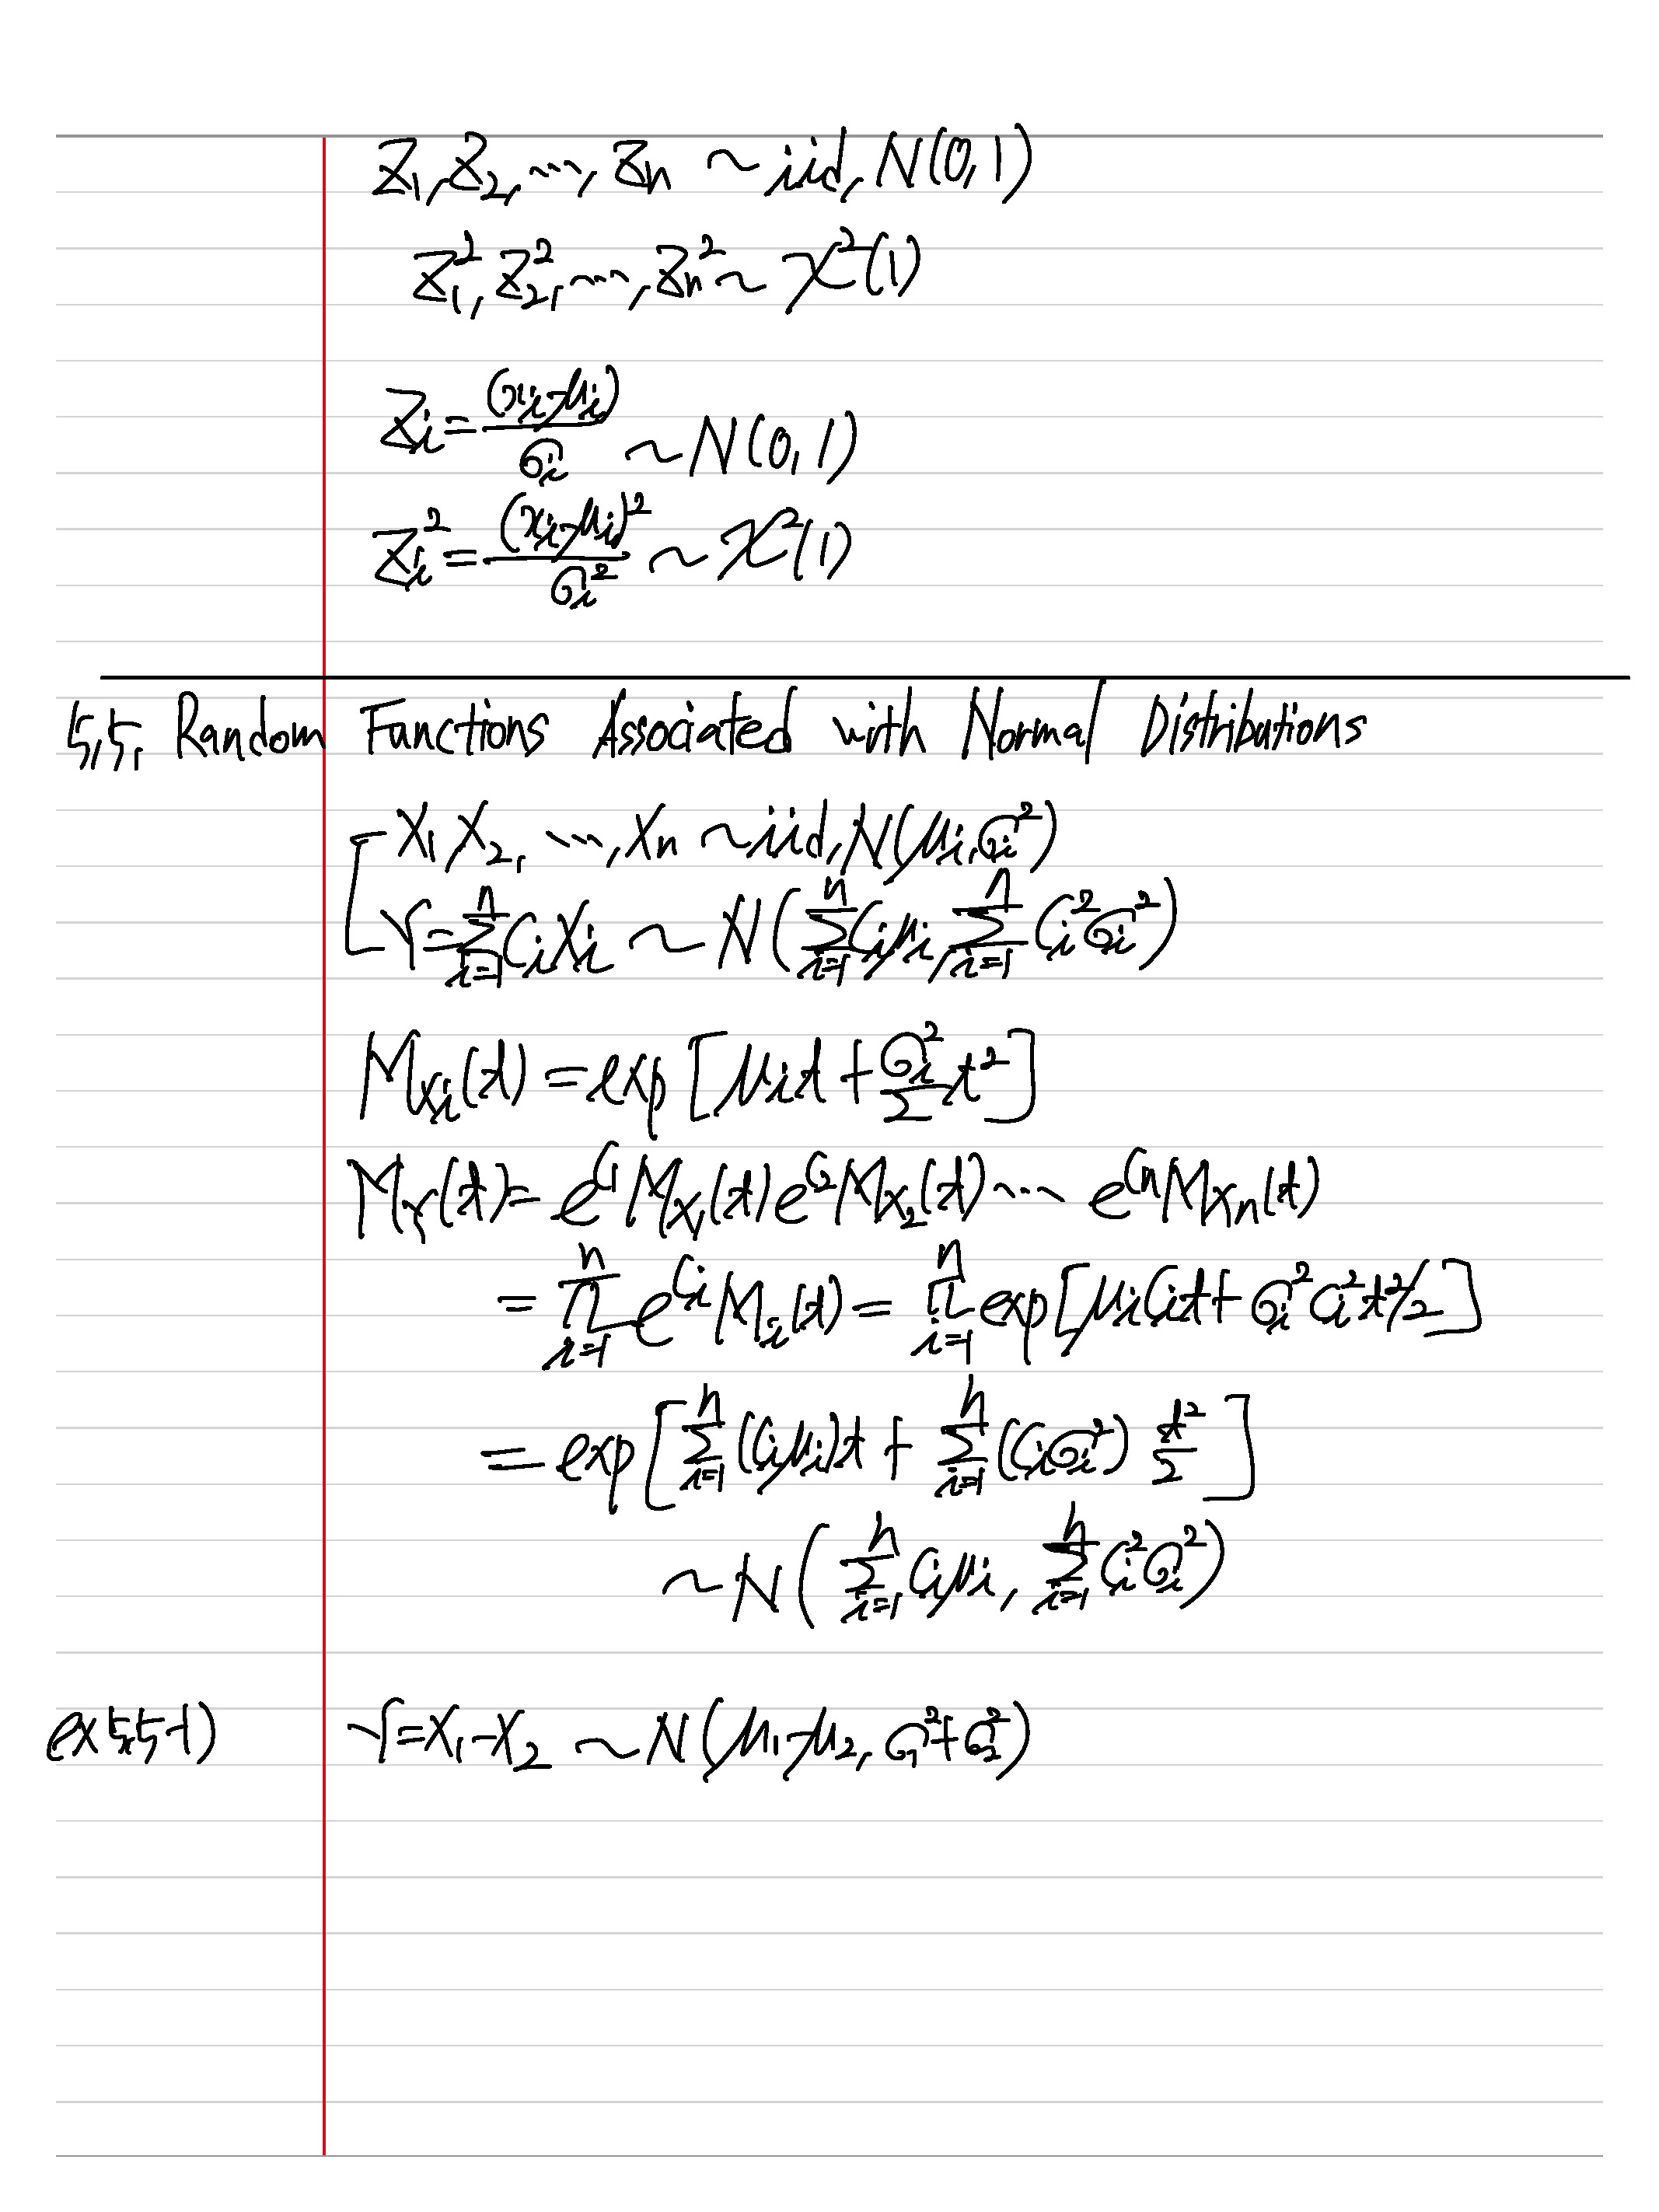 Z₁, Z₂, ⋯, Zₙ ~ iid, N(0,1)
Z₁², Z₂², ⋯, Zₙ² ~ χ²(1)
Zᵢ = (xᵢ-μᵢ)/σᵢ ~ N(0,1)
Zᵢ² = (xᵢ-μᵢ)²/σᵢ² ~ χ²(1)
5.5. Random Functions Associated with Normal Distributions
X₁, X₂, ⋯, Xₙ ~ iid, N(μᵢ, σᵢ²)
Y = ∑ᵢ₌₁ⁿ CᵢXᵢ ~ N(∑ᵢ₌₁ⁿ Cᵢμᵢ, ∑ᵢ₌₁ⁿ Cᵢ²σᵢ²)
M_{Xᵢ}(t) = exp[μᵢt + (σᵢ²/2)t²]
M_Y(t) = e^{C₁}M_{X₁}(t) e^{C₂}M_{X₂}(t) ⋯ e^{Cₙ}M_{Xₙ}(t)
= ∏ᵢ₌₁ⁿ e^{Cᵢ}Mᵢ(t) = ∏ᵢ₌₁ⁿ exp[μᵢCᵢt + σᵢ²Cᵢ²t²/2]
= exp[∑ᵢ₌₁ⁿ(Cᵢμᵢ)t + ∑ᵢ₌₁ⁿ(Cᵢσᵢ²) t²/2]
~ N(∑ᵢ₌₁ⁿ Cᵢμᵢ, ∑ᵢ₌₁ⁿ Cᵢ²σᵢ²)
ex 5.5-1) Y = X₁-X₂ ~ N(μ₁-μ₂, σ₁²+σ₂²)